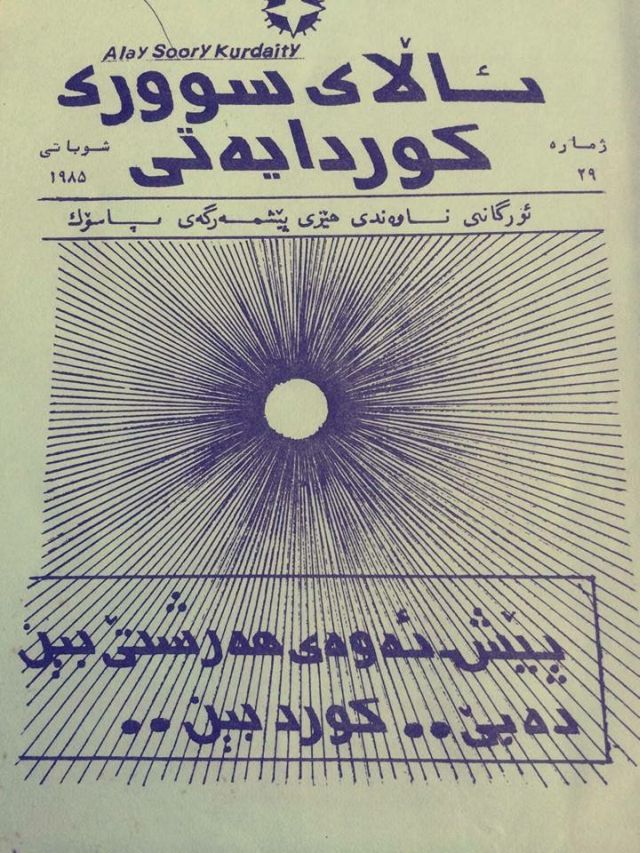 Alay Soory Kurdaity
ئاڵای سووری
کوردایەتی
ژمارە
٢٩
شوباتی
١٩٨٥
ئۆرگانی ناوەندی هێزی پێشمەرگەی پاسۆک
پێش ئەوەی هەرشتێ ببن
دەبێ.. کورد ببن..